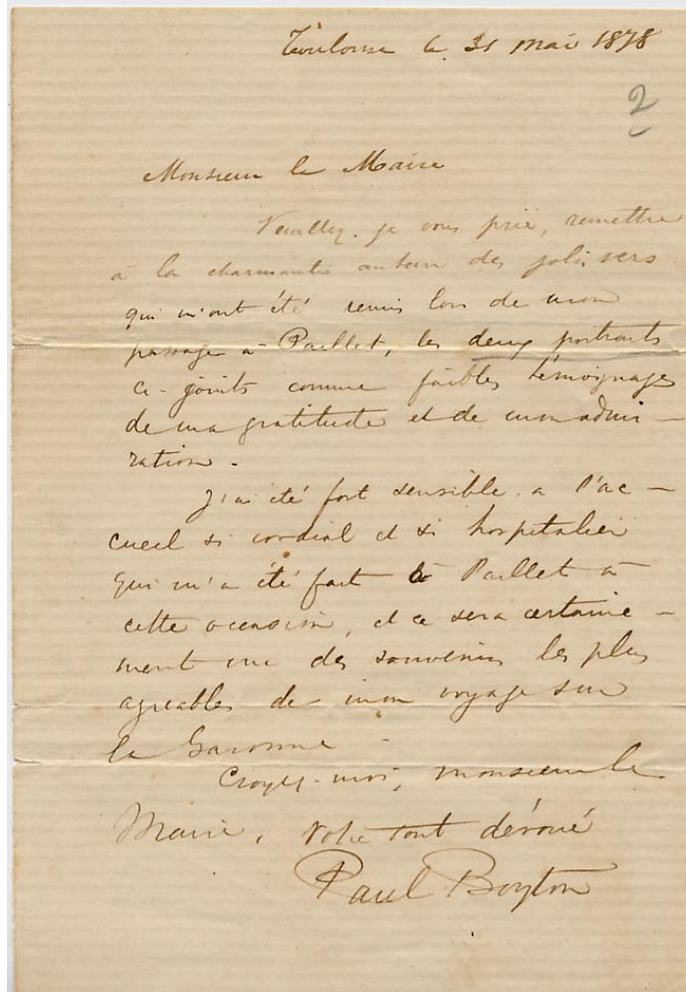 Toulouse le 31 mai 1878
2
Monsieur le Maire
Veuillez, je vous prie, remettre
à la charmante auteur des jolis vers
qui m'ont été remis lors de mon
passage à Paillet, les deux portraits
ci-joints comme faibles témoignages
de ma gratitude et de mon admi-
ration.
J'ai été fort sensible a l'ac-
cueil si cordial et si hospitalier
qui m'a été fait à Paillet à
cette occasion, et ce sera certaine-
ment un des souvenirs les plus
agréables de mon voyage sur
la Garonne.
Croyez-moi, monsieur le
Maire, votre tout dévoué
Paul Boyton